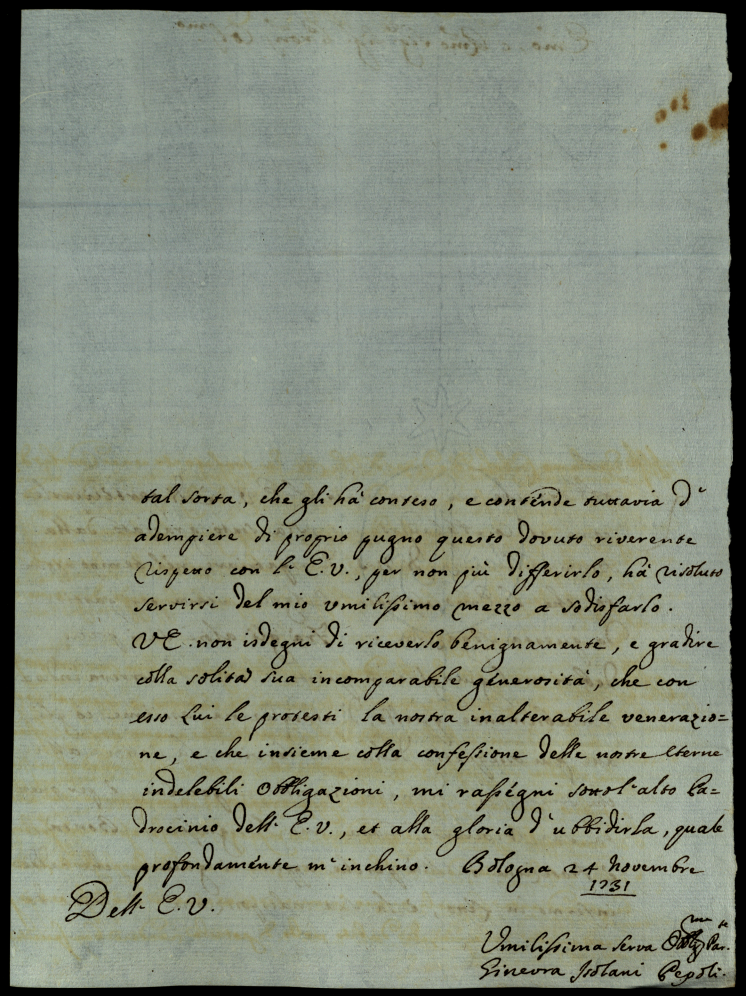 tal sorta, che gli hà conteso, e conténde tuttavia d'
adempiere di proprio pugno questo dovuto riverente
rispetto con l'E.V., per non più differirlo, hà risoluto
servirsi del mio umilissimo mezzo a sodisfarlo.
VE. non isdegni di riceverlo benignamente, e gradire
colla solita sua incomparabile génerosità, che con
esso Lui le protesti la nostra inalterabile venerazio=
ne, e che insieme colla confessione delle nostre eterne
indelebili Obbligazioni, mi rasségni sotto l'alto Pa=
drocinio dell'E.V., et alla gloria d'ubbidirla, quale
profondaménte m'inchino. Bologna 24 Novembre
1731
Dell'E.V.
Umilissima serva
Ginevra Isolani Pepoli.